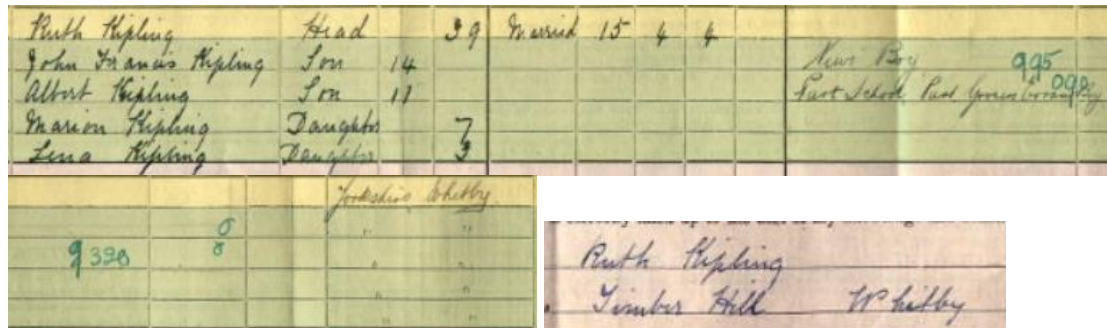 Ruth Kipling Head 39 Married 15 4 4
John Francis Kipling Son 14 News Boy 995
Albert Kipling Son 11 Part School Part
Marion Kipling Daughter 7
Lena Kipling Daughter 3
Yorkshire Whitby
" "
" "
" "
" "
Ruth Kipling
Timber Hill Whitby